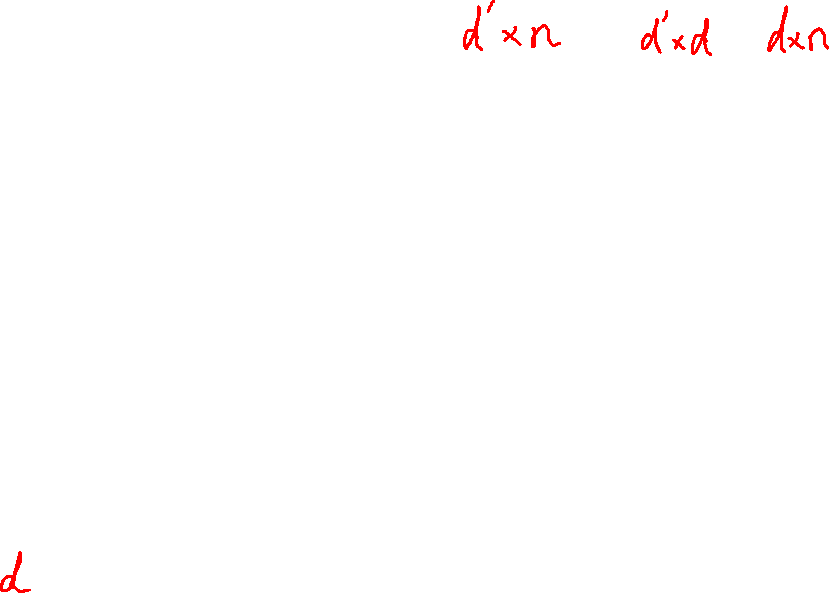 d' × n d' × d d × n
d